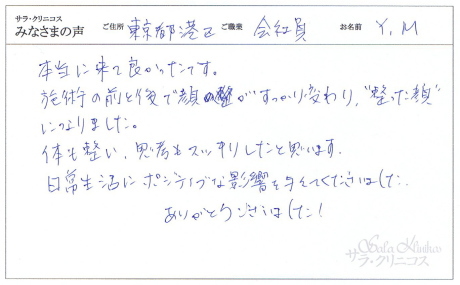 サラ・クリニコス
みなさまの声 ご住所 東京都港区 ご職業 会社員 お名前 Y.M
本当に来て良かったです。
施術の前と後で顔がすっかり変わり、"整った顔"
になりました。
体も整い、思考もスッキリしたと思います。
日常生活にポジティブな影響を与えてくださいました。
ありがとうございました!
Sala Klinikos
サラ・クリニコス